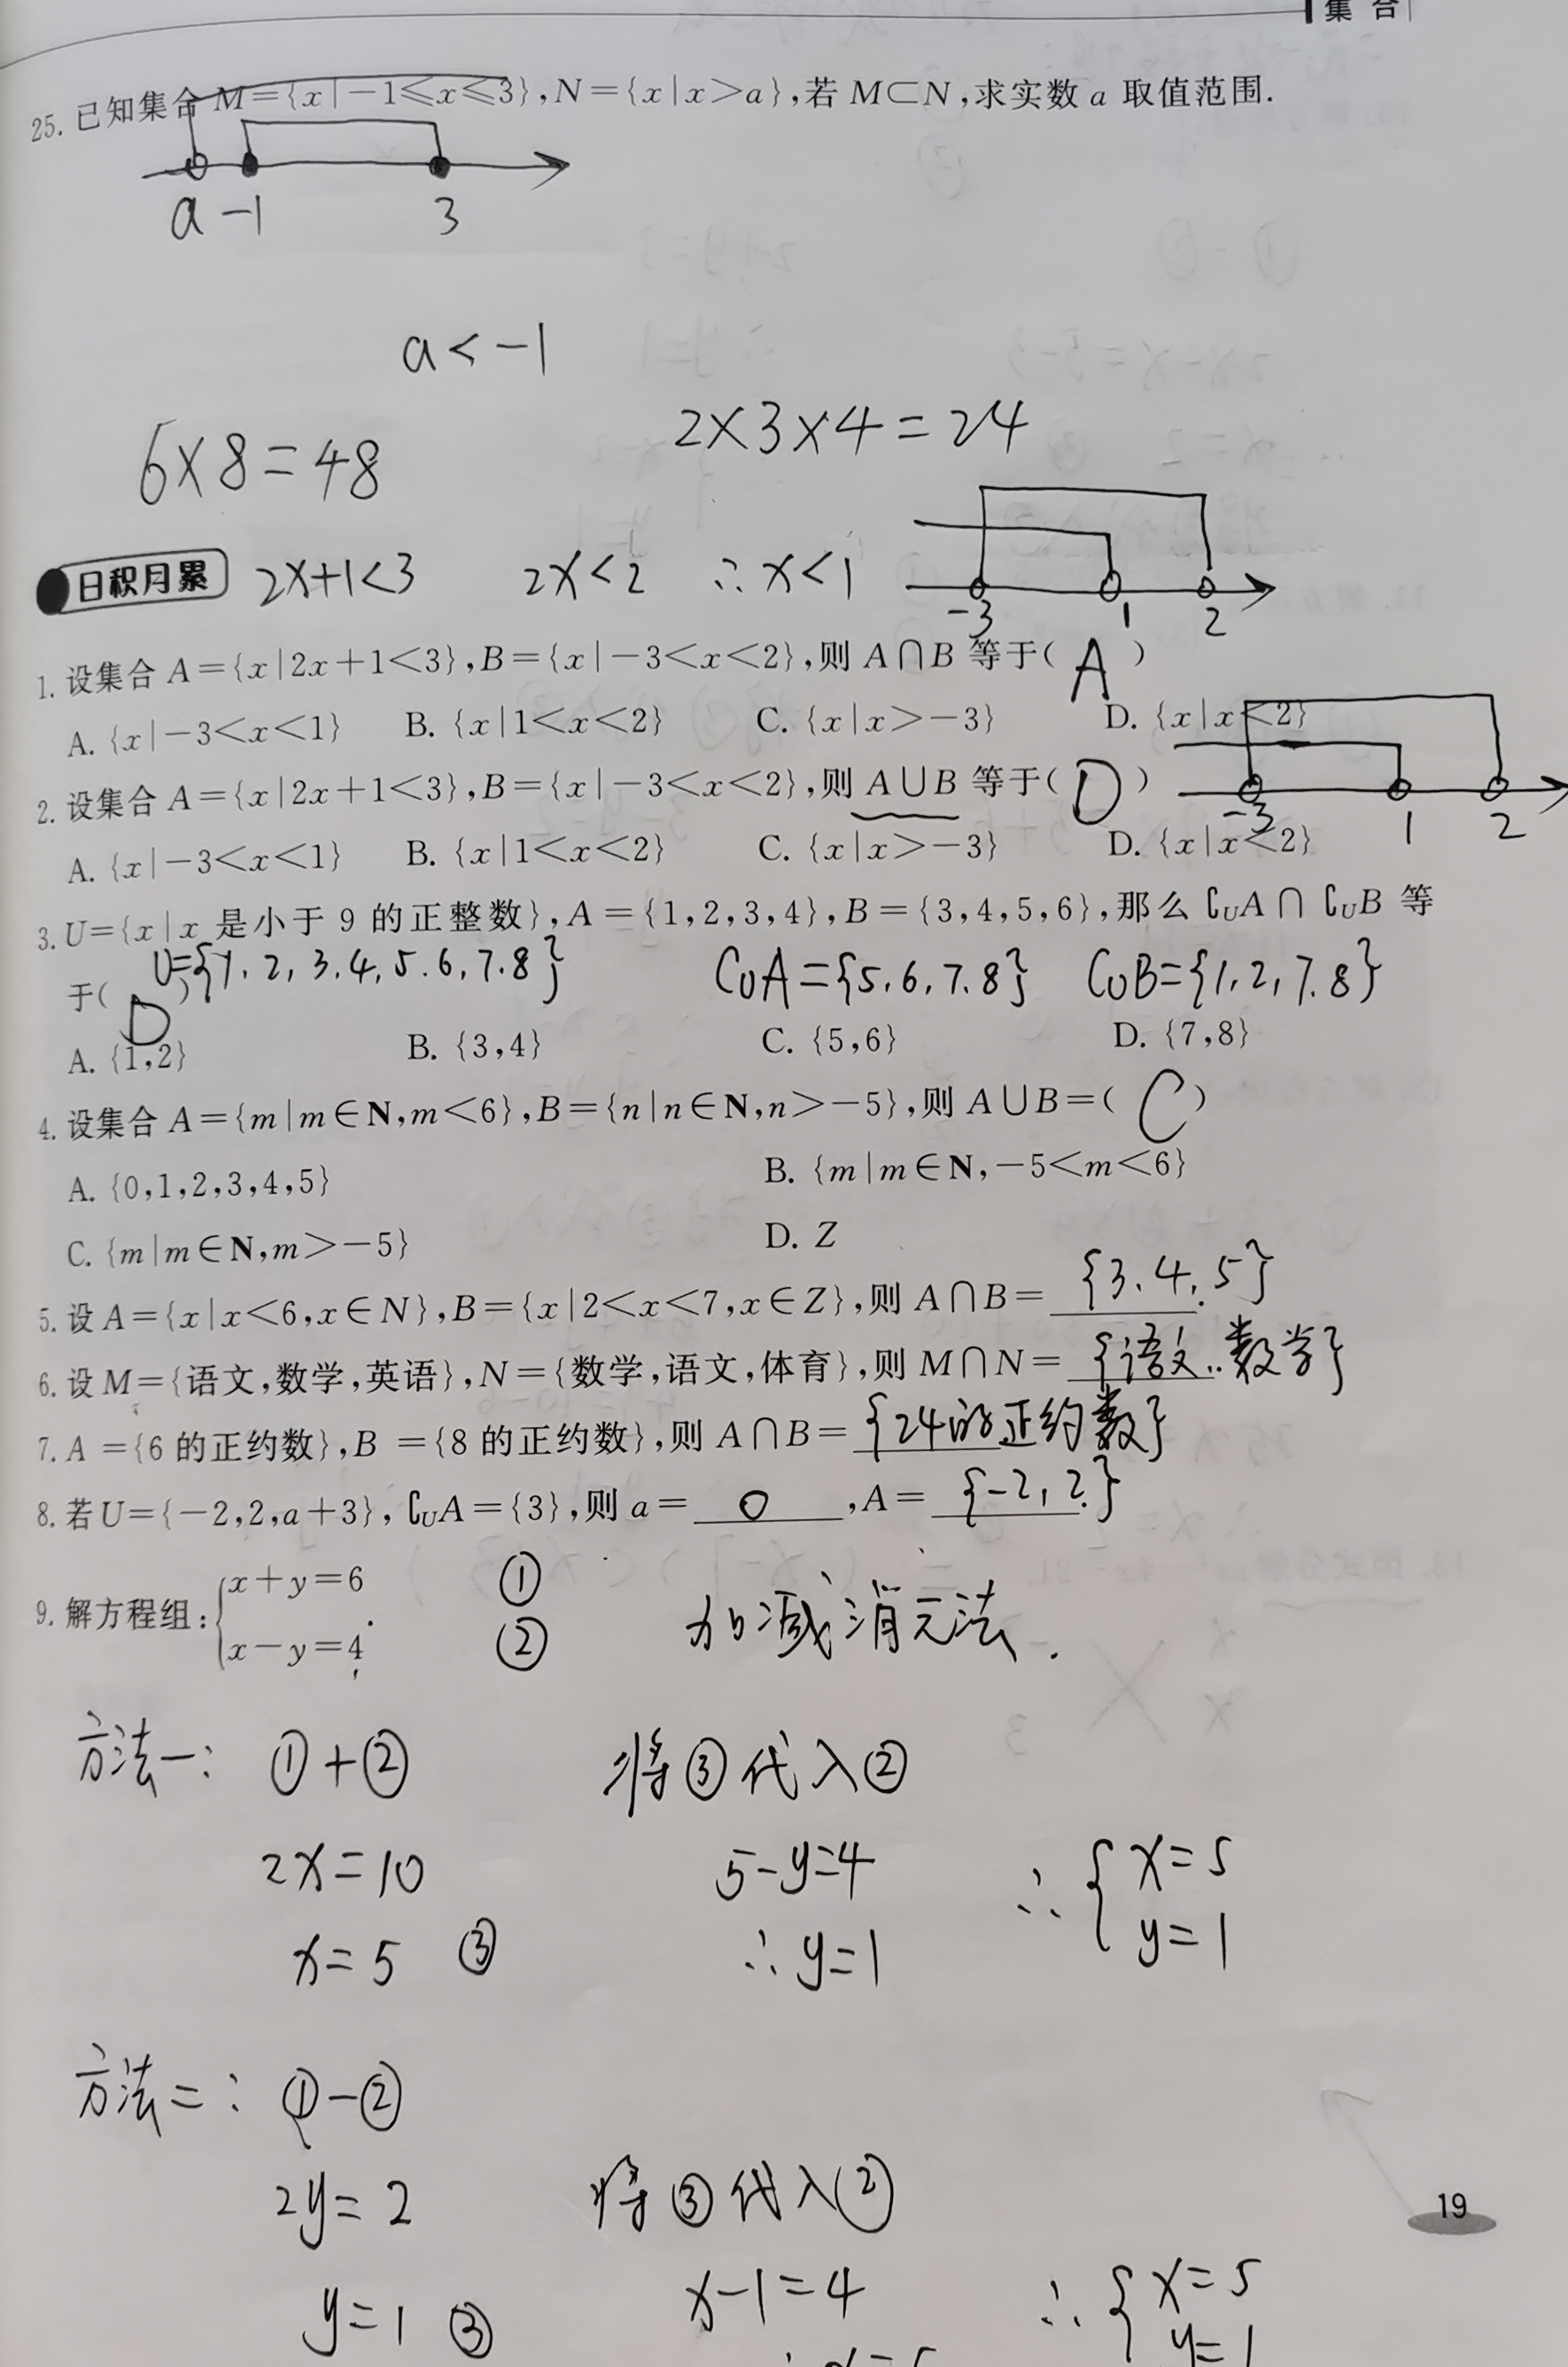 集 合
25. 已知集合 M={x|-1≤x≤3},N={x|x>a},若 M⊂N,求实数 a 取值范围.
a -1 3
a<-1
6×8=48 2×3×4=24
日积月累 2x+1<3 2x<2 ∴x<1
-3 1 2
1. 设集合 A={x|2x+1<3},B={x|-3<x<2},则 A∩B 等于( A )
A. {x|-3<x<1} B. {x|1<x<2} C. {x|x>-3} D. {x|x<2}
2. 设集合 A={x|2x+1<3},B={x|-3<x<2},则 A∪B 等于( D )
-3 1 2
A. {x|-3<x<1} B. {x|1<x<2} C. {x|x>-3} D. {x|x<2}
3. U={x|x 是小于 9 的正整数},A={1,2,3,4},B={3,4,5,6},那么 ∁UA∩∁UB 等
于( D ) U={1,2,3,4,5.6,7.8} CUA={5,6,7.8} CUB={1,2,7.8}
A. {1,2} B. {3,4} C. {5,6} D. {7,8}
4. 设集合 A={m|m∈N,m<6},B={n|n∈N,n>-5},则 A∪B=( C )
A. {0,1,2,3,4,5} B. {m|m∈N,-5<m<6}
C. {m|m∈N,m>-5} D. Z
5. 设 A={x|x<6,x∈N},B={x|2<x<7,x∈Z},则 A∩B= {3.4.5} .
6. 设 M={语文,数学,英语},N={数学,语文,体育},则 M∩N= {语文.数学} .
7. A ={6 的正约数},B ={8 的正约数},则 A∩B= {24的正约数}
8. 若 U={-2,2,a+3},∁UA={3},则 a= 0 ,A= {-2,2} .
9. 解方程组:{x+y=6 ①
x-y=4. ② 加减消元法.
方法一: ①+② 将③代入②
2x=10 5-y=4 ∴{x=5
x=5 ③ ∴y=1 y=1
方法二: ①-②
2y=2 将③代入②
19
y=1 ③ x-1=4 ∴{x=5
y=1